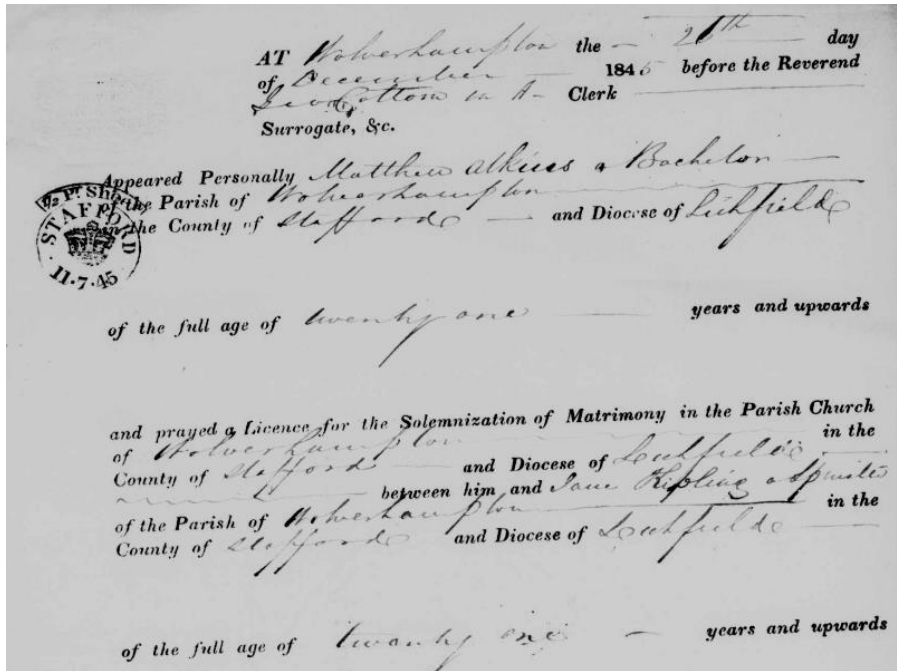 AT Wolverhampton the 26th day
of December 1845 before the Reverend
Geo Cottom in A Clerk
Surrogate, &c.
Appeared Personally Matthew Atkins a Bachelor
of the Parish of Wolverhampton
in the County of Stafford and Diocese of Lichfield
STAFFORD
11.7.45
of the full age of twenty one years and upwards
and prayed a Licence for the Solemnization of Matrimony in the Parish Church
of Wolverhampton in the
County of Stafford and Diocese of Lichfield
between him and Jane Kipling a Spinster
of the Parish of Wolverhampton in the
County of Stafford and Diocese of Lichfield
of the full age of twenty one years and upwards